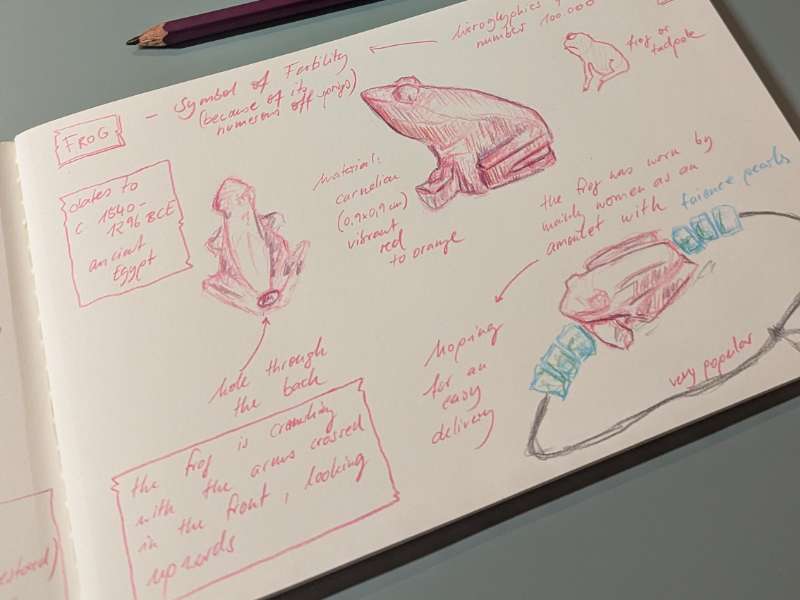 FROG
- Symbol of Fertility
(because of its
numerous off springs)
hieroglyphics
number 100.000
frog or
tadpole
dates to
c 1540-
1296 BCE
ancient
Egypt
Material:
carnelian
(0,9x0,9cm)
vibrant
red
to orange
the frog was worn by
mainly women as an
amulet with faience pearls
hole through
the back
Hoping
for an
easy
delivery
very popular
the frog is crouching
with the arms crossed
in the front, looking
upwards